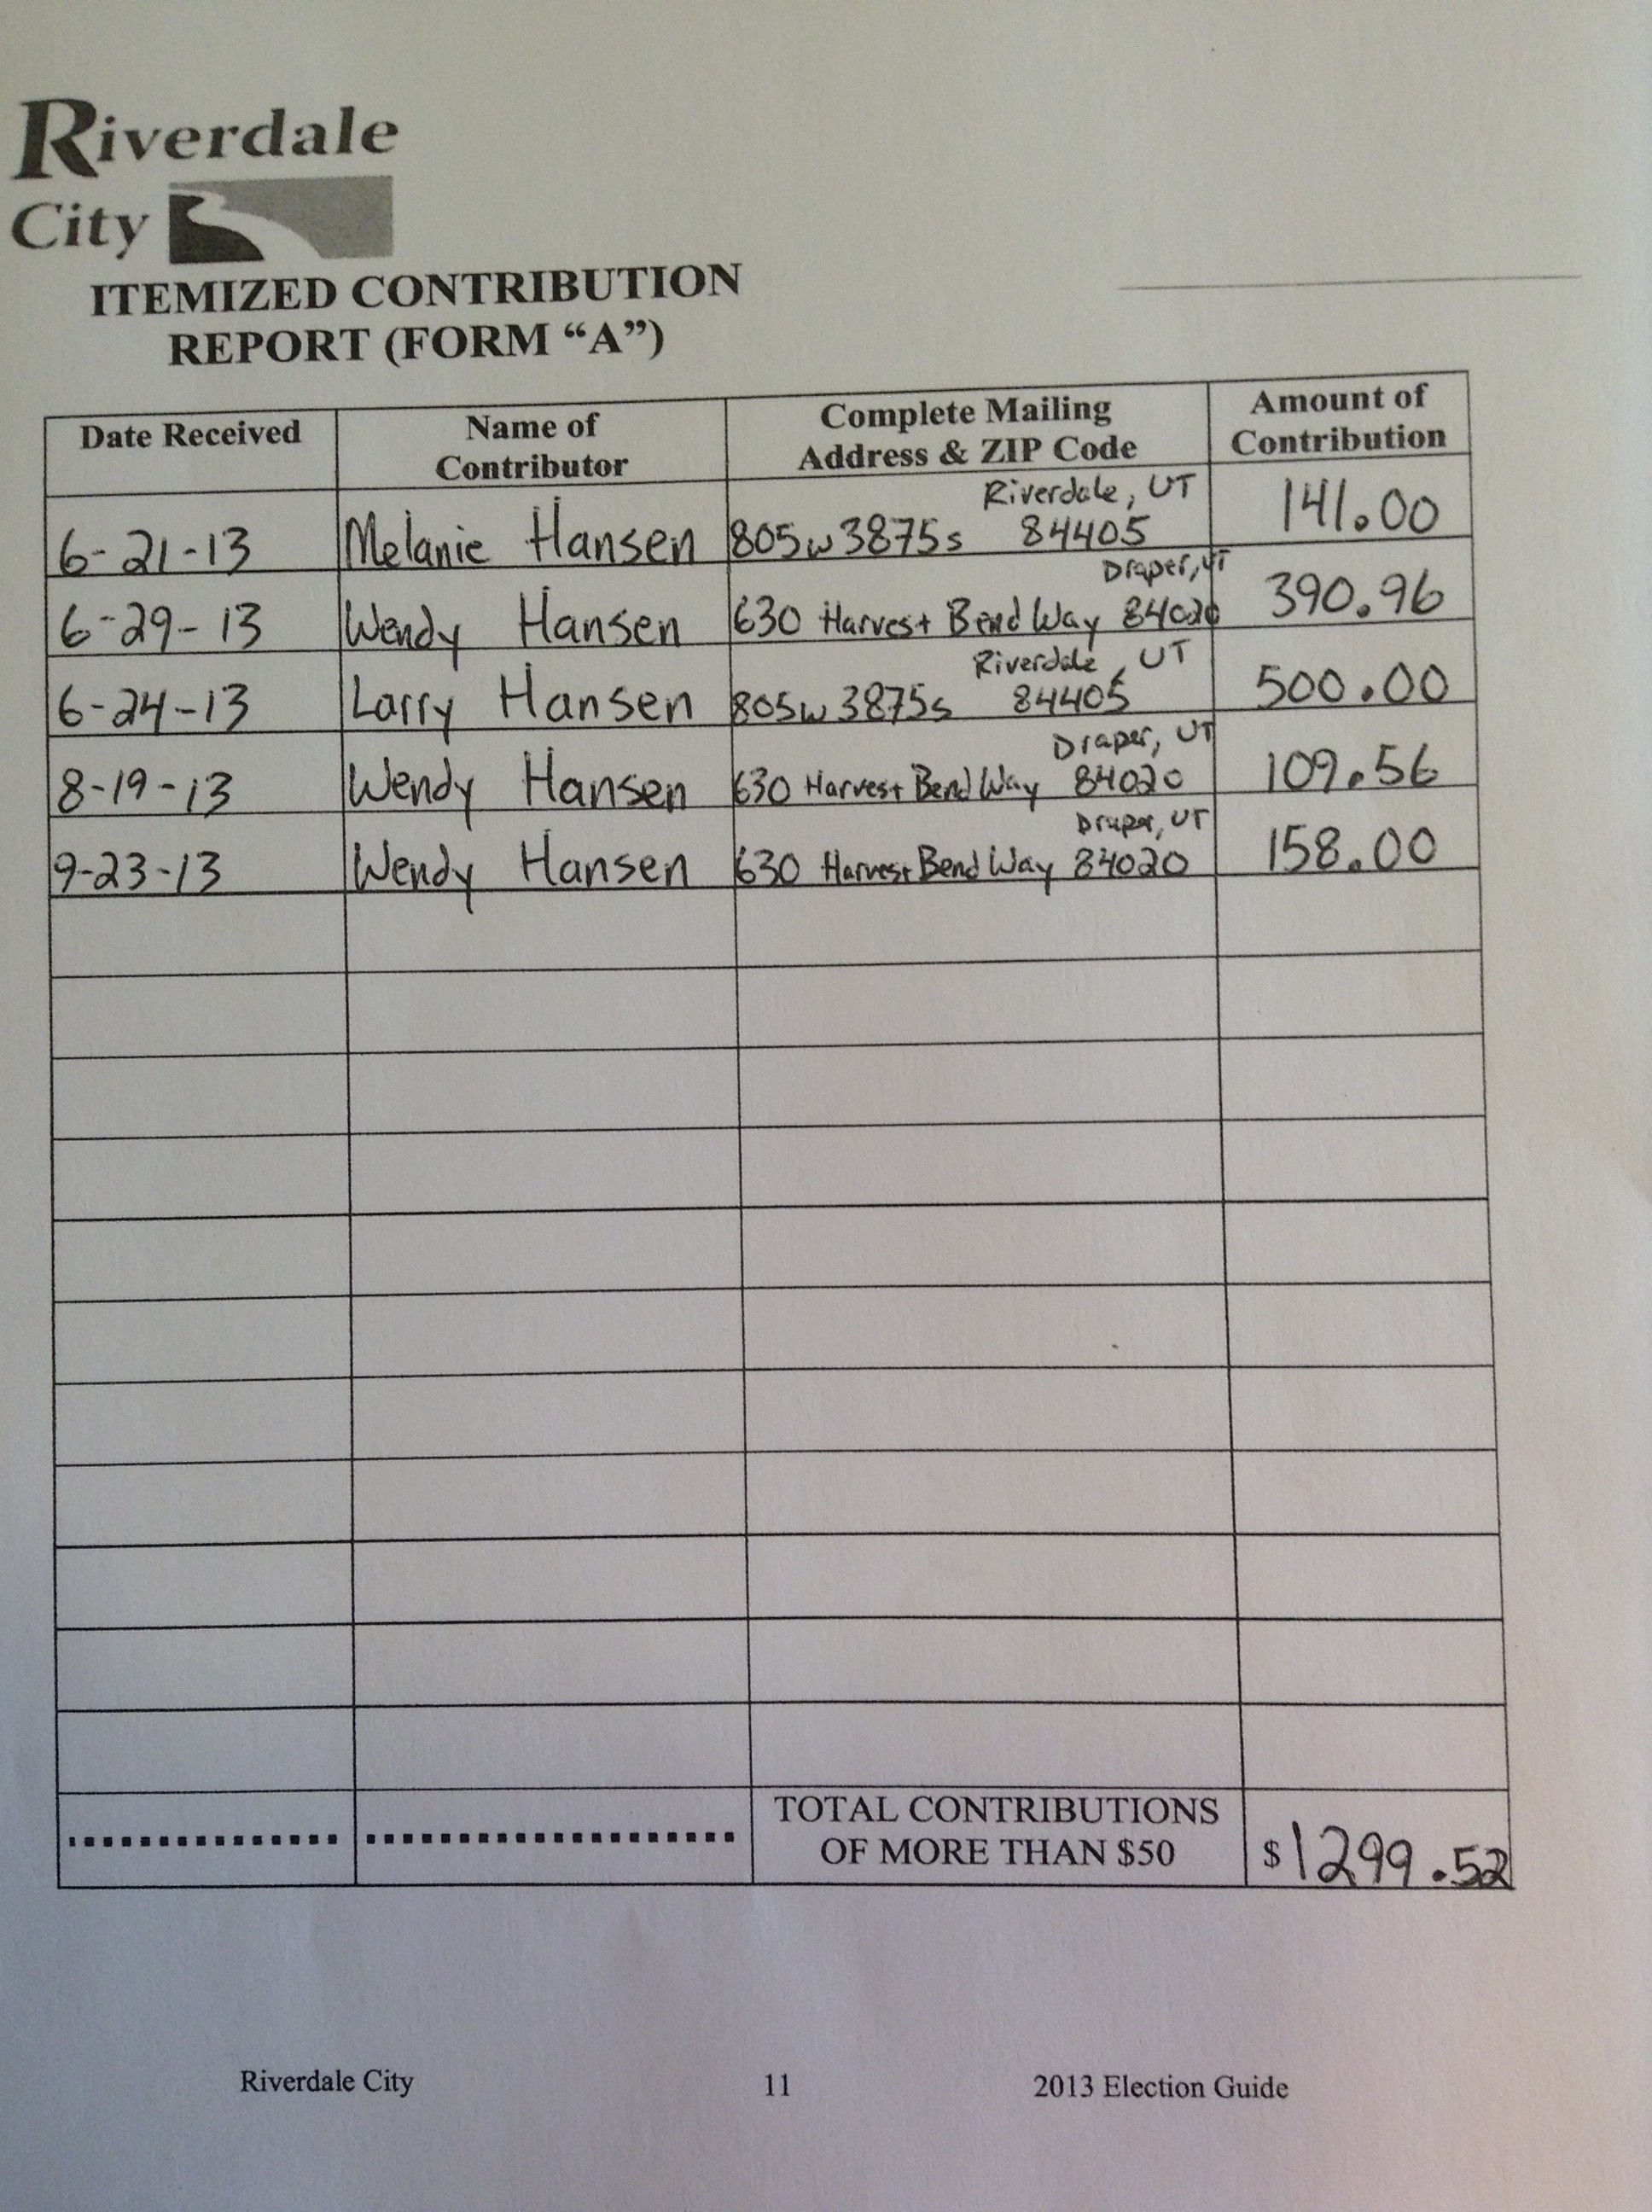 Riverdale
City
ITEMIZED CONTRIBUTION
REPORT (FORM “A”)
Date Received
Name of
Contributor
Complete Mailing
Address & ZIP Code
Amount of
Contribution
6-21-13 Melanie Hansen 805w 3875s Riverdale, UT 84405 141.00
6-29-13 Wendy Hansen 630 Harvest Bend Way Draper, UT 84020 390.96
6-24-13 Larry Hansen 805w 3875s Riverdale, UT 84405 500.00
8-19-13 Wendy Hansen 630 Harvest Bend Way Draper, UT 84020 109.56
9-23-13 Wendy Hansen 630 Harvest Bend Way Draper, UT 84020 158.00
TOTAL CONTRIBUTIONS
OF MORE THAN $50
$1299.52
Riverdale City 11 2013 Election Guide